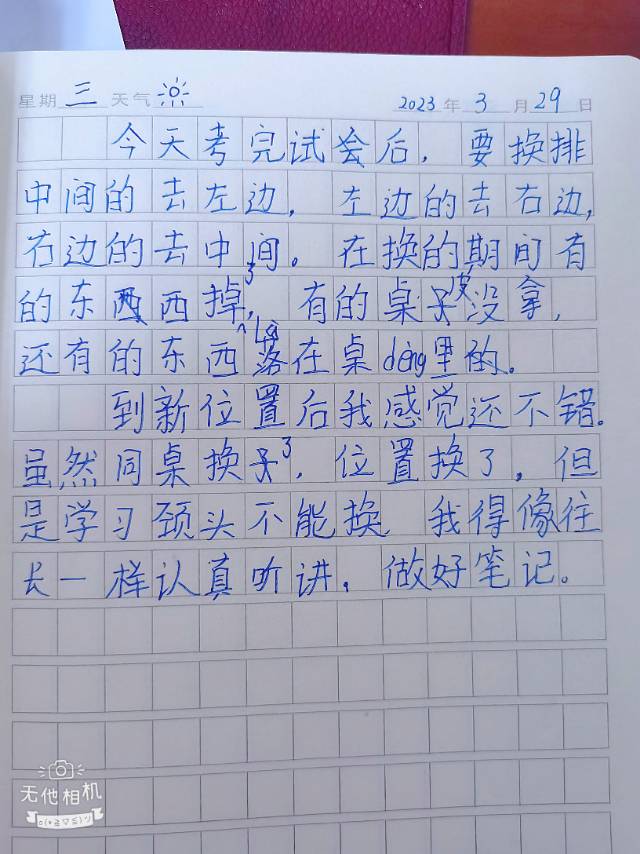 星期 三 天气 2023年3月29日
今天考完试会后，要换排
中间的去左边，左边的去右边，
右边的去中间。在换的期间有
的东西西掉了，有的桌子皮没拿，
还有的东西落在桌dèng里的。
到新位置后我感觉还不错。
虽然同桌换了，位置换了，但
是学习颈头不能换 我得像往
长一样认真听讲，做好笔记。
无他相机